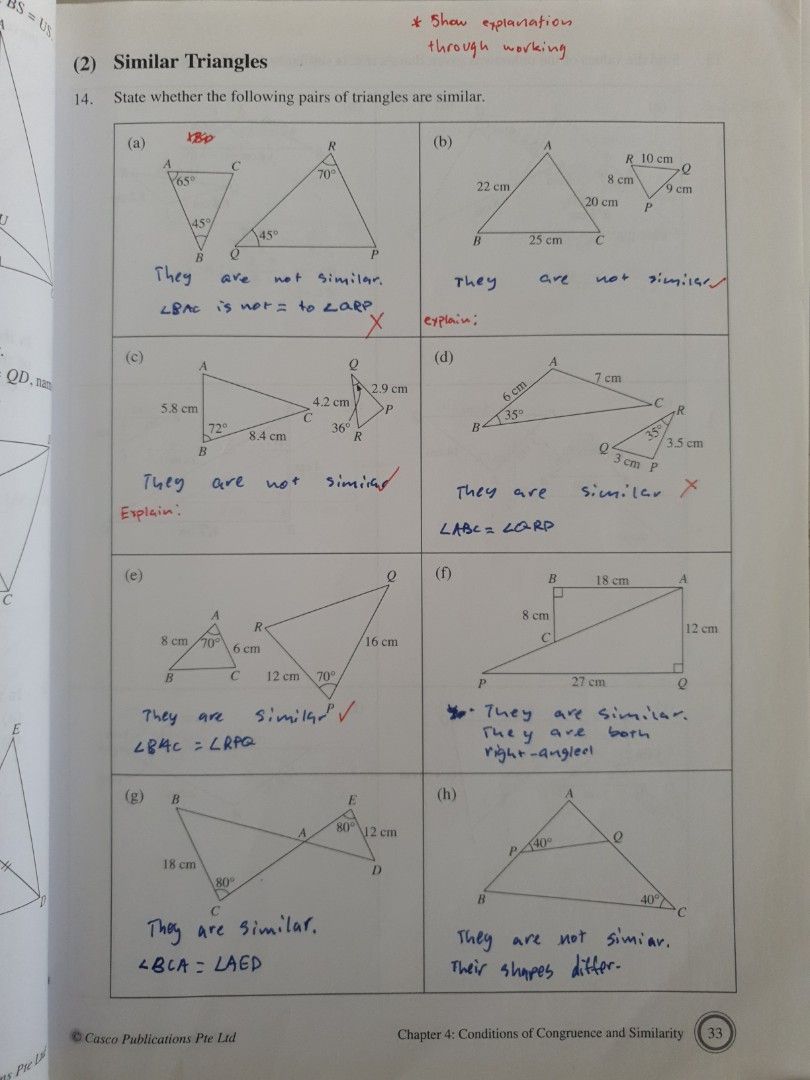 BS = US.
* Show explanation
through working
(2) Similar Triangles
14. State whether the following pairs of triangles are similar.
(a)
A
C
65°
45°
B
R
70°
45°
Q
P
They are not similar.
∠BAC is not = to ∠QRP
(b)
A
22 cm
20 cm
B
25 cm
C
R 10 cm Q
8 cm
9 cm
P
They are not similar
explain:
(c)
A
5.8 cm
72°
8.4 cm
B
C
Q
2.9 cm
4.2 cm
P
36°
R
They are not similar
Explain:
(d)
A
6 cm
7 cm
35°
B
C
R
35°
3.5 cm
Q
3 cm P
They are similar
∠ABC = ∠QRP
QD, nam
(e)
A
8 cm 70° 6 cm
B
C
Q
R
16 cm
12 cm 70°
P
They are similar
∠BAC = ∠RPQ
(f)
B 18 cm A
8 cm
C
12 cm
P 27 cm Q
They are similar.
They are both
right-angled
(g)
B
E
80° 12 cm
A
D
18 cm
80°
C
They are similar.
∠BCA = ∠AED
(h)
A
P 40° Q
B
40° C
They are not simiar.
Their shapes differ.
U
C
E
D
© Casco Publications Pte Ltd
Chapter 4: Conditions of Congruence and Similarity 33